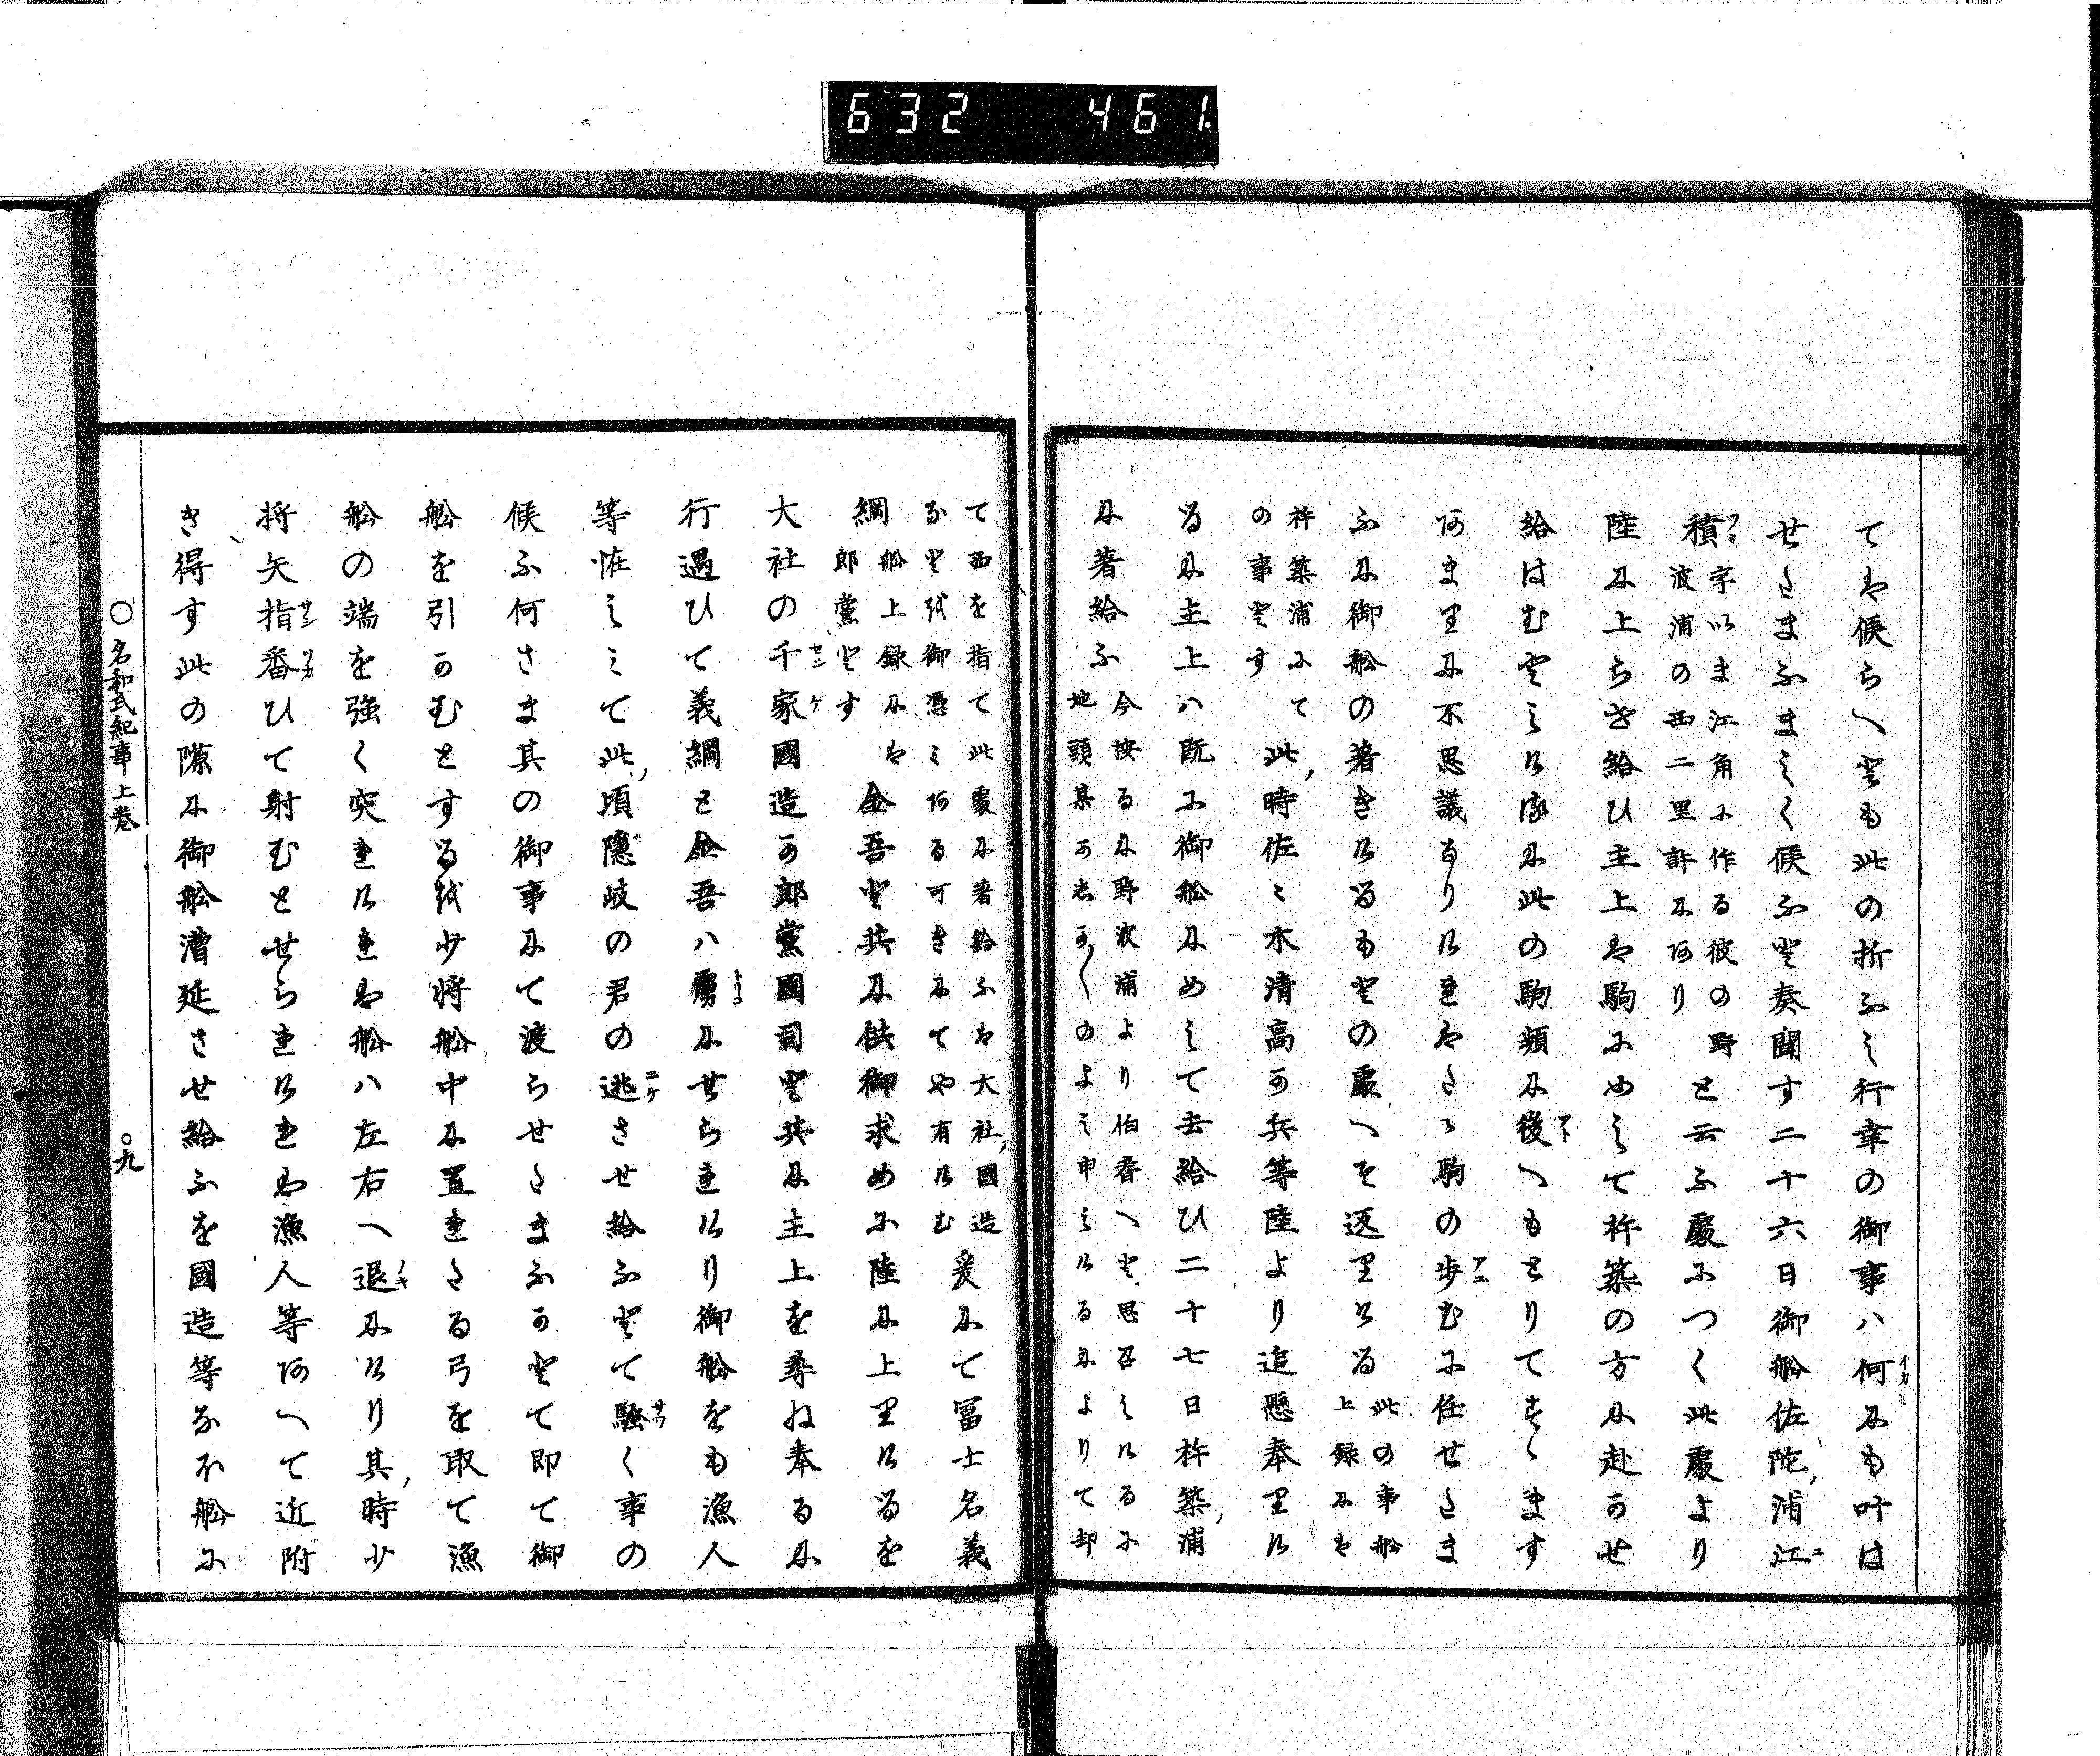 632 461
ては候らへども此の折ふし行幸の御事ハ何にも叶は
せたまふまじく候ふと奏聞す二十六日御舩佐陀浦江
積字以ま江角に作る彼の野波浦の西二里許に阿りと云ふ處につく此處より
陸に上らせ給ひ主上は駒にめして杵築の方に赴かせ
給はむとしけるに此の駒頻に後へもとりてすゝます
阿まりに不思議なりけれはたゝ駒の歩むに任せたま
ふに御舩の著きけるもとの處へそ返りける此の事舩上録には
杵築浦にての事とす此時佐々木清高か兵等陸より追懸奉りけ
るに主上ハ既に御舩にめして去給ひ二十七日杵築浦
に著給ふ今按るに野波浦より伯耆へと思召しけるに地頭某か悪かくのよし申しけるによりて却
て西を指て此處に著給ふは大社國造なとを御憑み阿る可きにてや有けむ爰にて冨士名義
綱舩上録には郎黨とす金吾と共に供御求めに陸に上りけるを
大社の千家國造か郎黨國司と共に主上を尋ね奉るに
行遇ひて義綱と金吾ハ虜にせられけり御舩をも漁人
等恠しみて此頃隠岐の君の逃させ給ふとて騒く事の
候ふ何さま其の御事にて渡らせたまふかとて即て御
舩を引かむとするを少将舩中に置れたる弓を取て漁
舩の端を強く突れけれは舩ハ左右へ退にけり其時少
将矢指番ひて射むとせられけれは漁人等阿へて近附
き得す此の隙に御舩漕延させ給ふを國造等なほ舩に
○名和氏紀事上巻 ○九